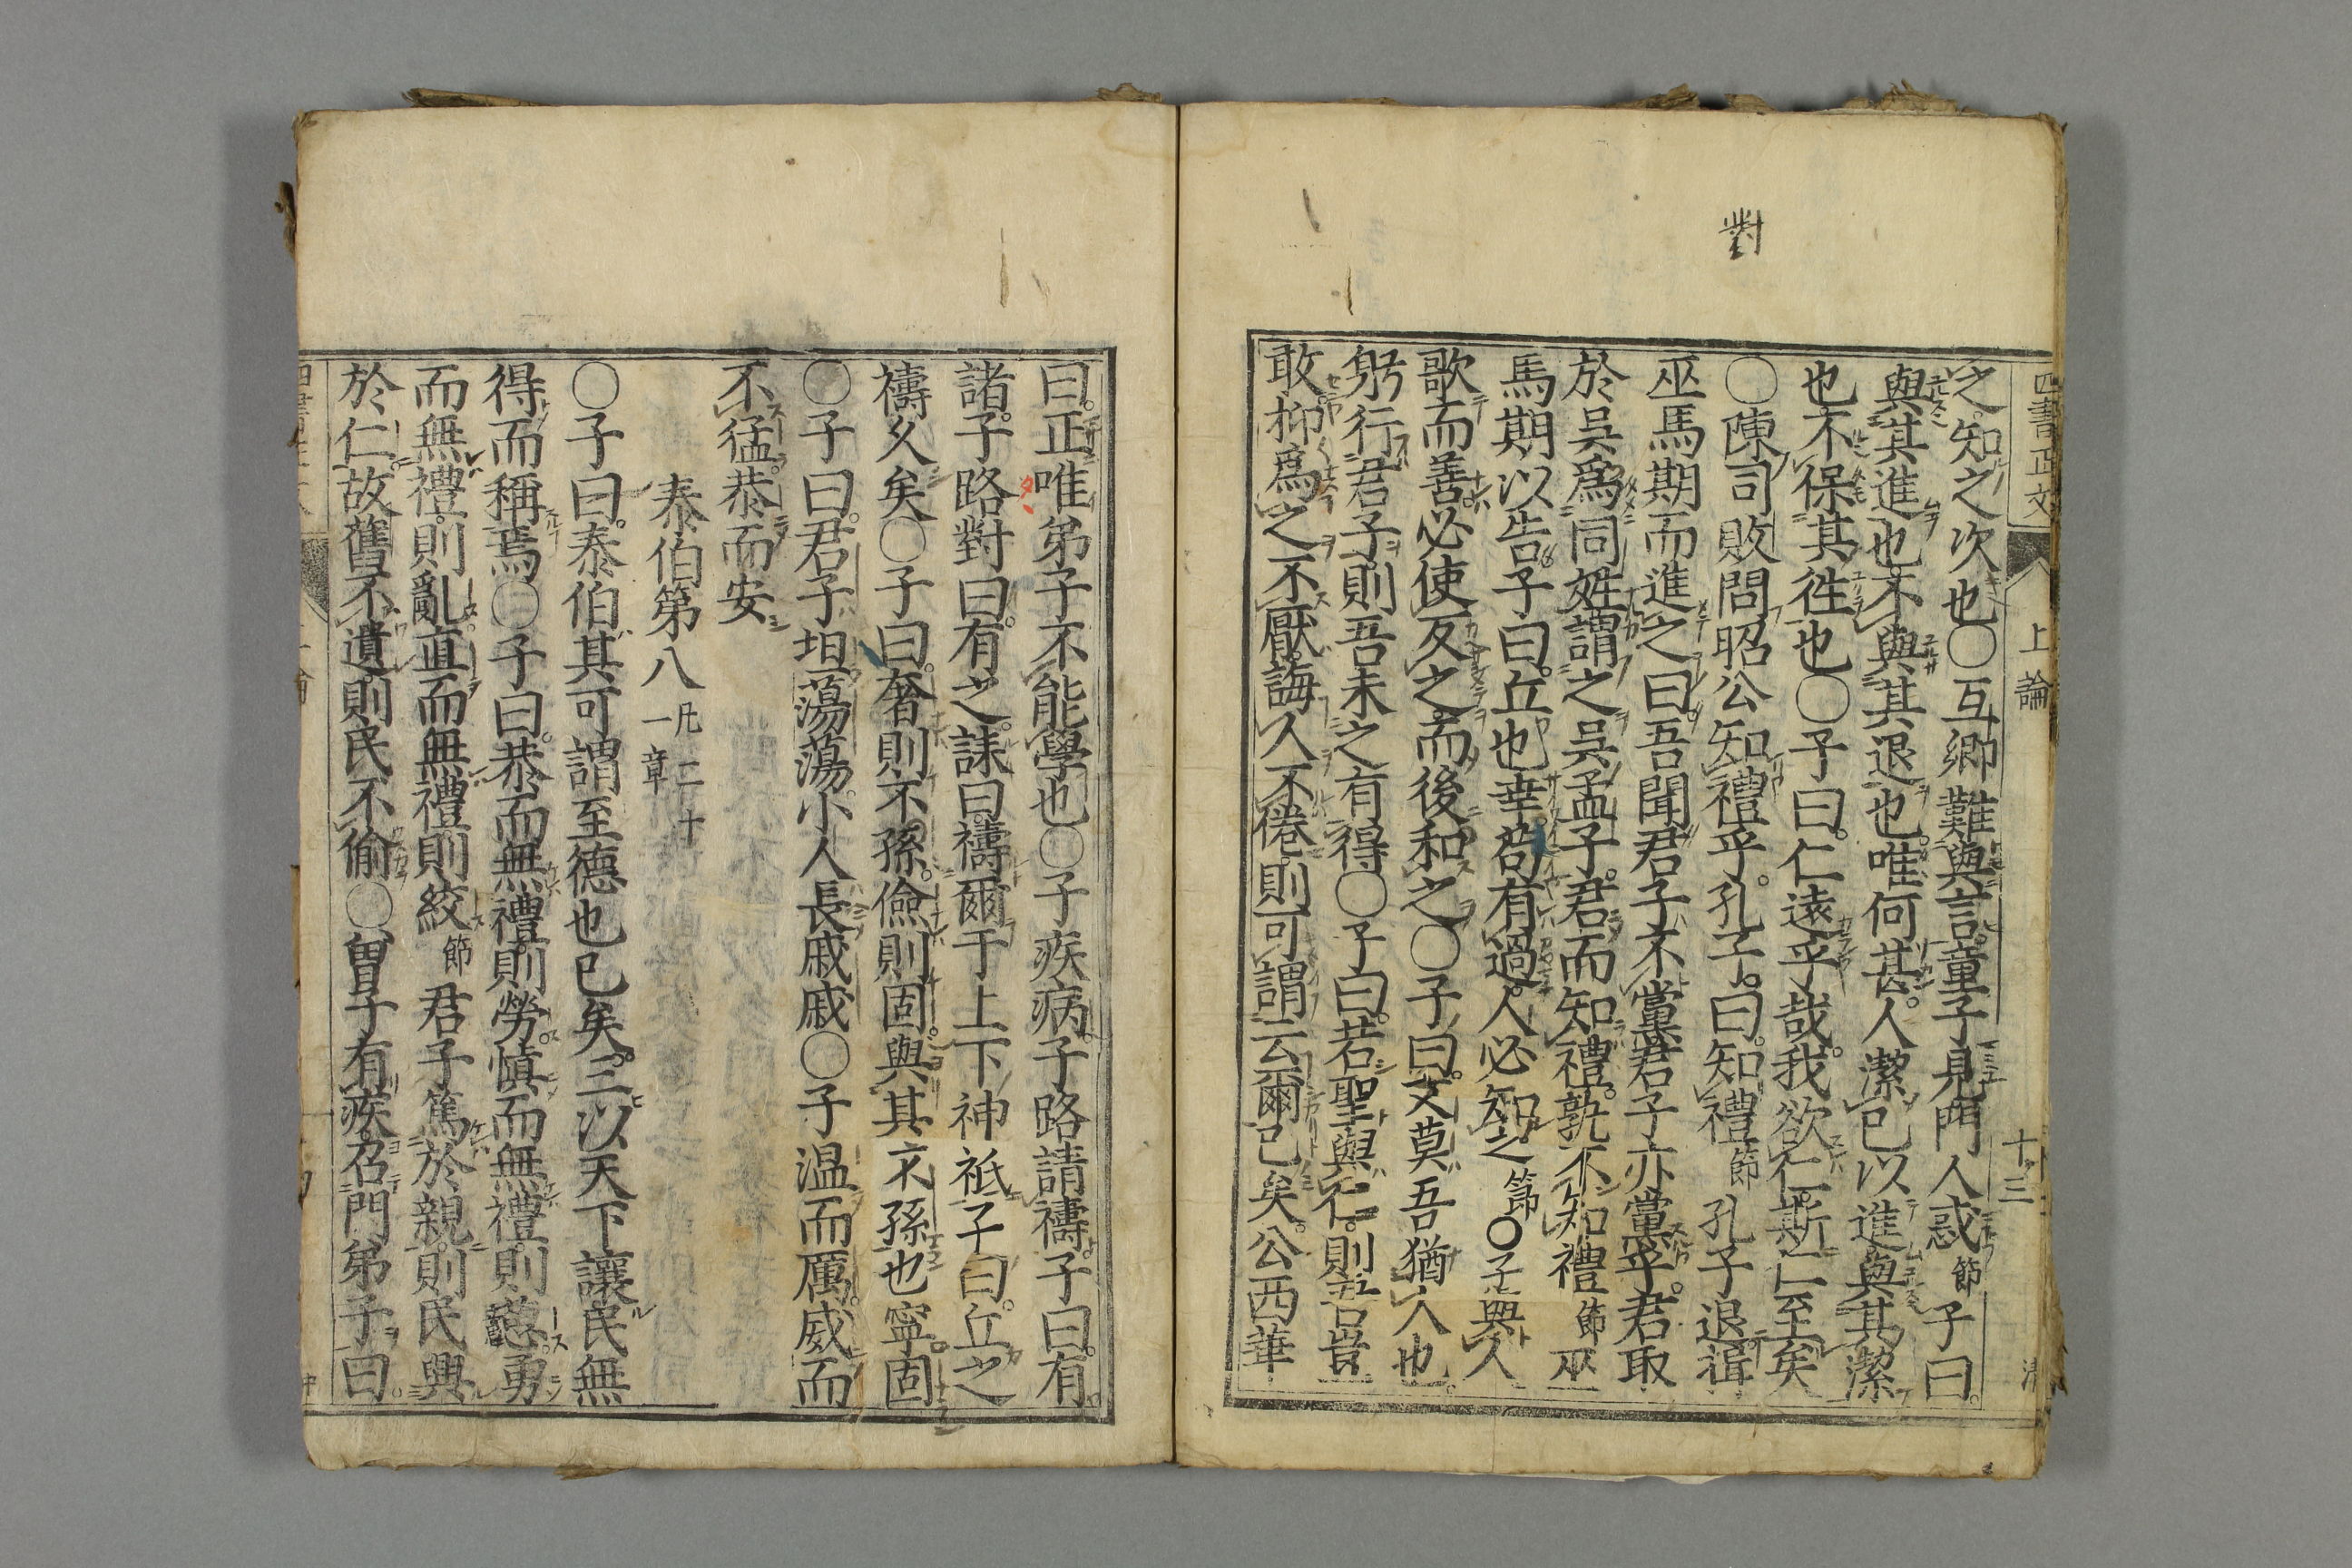 對
四書正文
上論
十三
之知之次也〇互鄉難與言童子見門人惑節子曰
與其進也不與其退也唯何甚人潔已以進與其潔
也不保其徃也〇子曰仁遠乎哉我欲仁斯仁至矣
〇陳司敗問昭公知禮乎孔子曰知禮節孔子退揖
巫馬期而進之曰吾聞君子不黨君子亦黨乎君取
於吳爲同姓謂之吳孟子君而知禮孰不知禮節巫
馬期以告子曰丘也幸苟有過人必知之節〇子與人
歌而善必使反之而後和之〇子曰文莫吾猶人也
躬行君子則吾未之有得〇子曰若聖與仁則吾豈
敢抑爲之不厭誨人不倦則可謂云爾已矣公西華
曰正唯弟子不能學也〇子疾病子路請禱子曰有
諸子路對曰有之誄曰禱爾于上下神祇子曰丘之
禱久矣〇子曰奢則不孫儉則固與其不孫也寧固
〇子曰君子坦蕩蕩小人長戚戚〇子温而厲威而
不猛恭而安
泰伯第八 凡二十一章
〇子曰泰伯其可謂至德也已矣三以天下讓民無
得而稱焉〇子曰恭而無禮則勞慎而無禮則葸勇
而無禮則亂直而無禮則絞節君子篤於親則民興
於仁故舊不遺則民不偷〇曾子有疾召門弟子曰